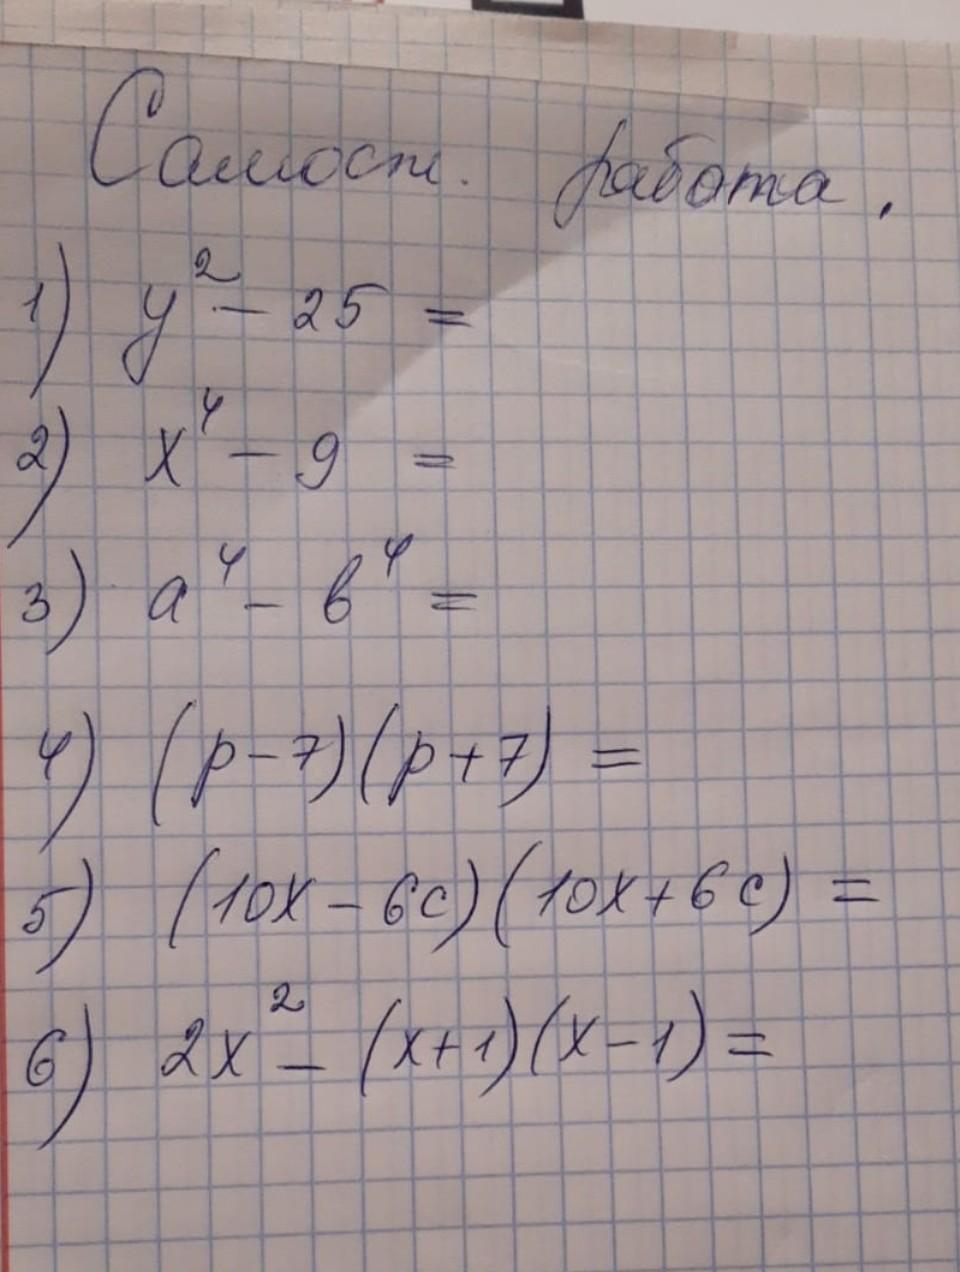 Самост. работа.
1) y² - 25 =
2) x⁴ - 9 =
3) a⁴ - b⁴ =
4) (p-7)(p+7) =
5) (10x - 6c)(10x + 6c) =
6) 2x² - (x+1)(x-1) =